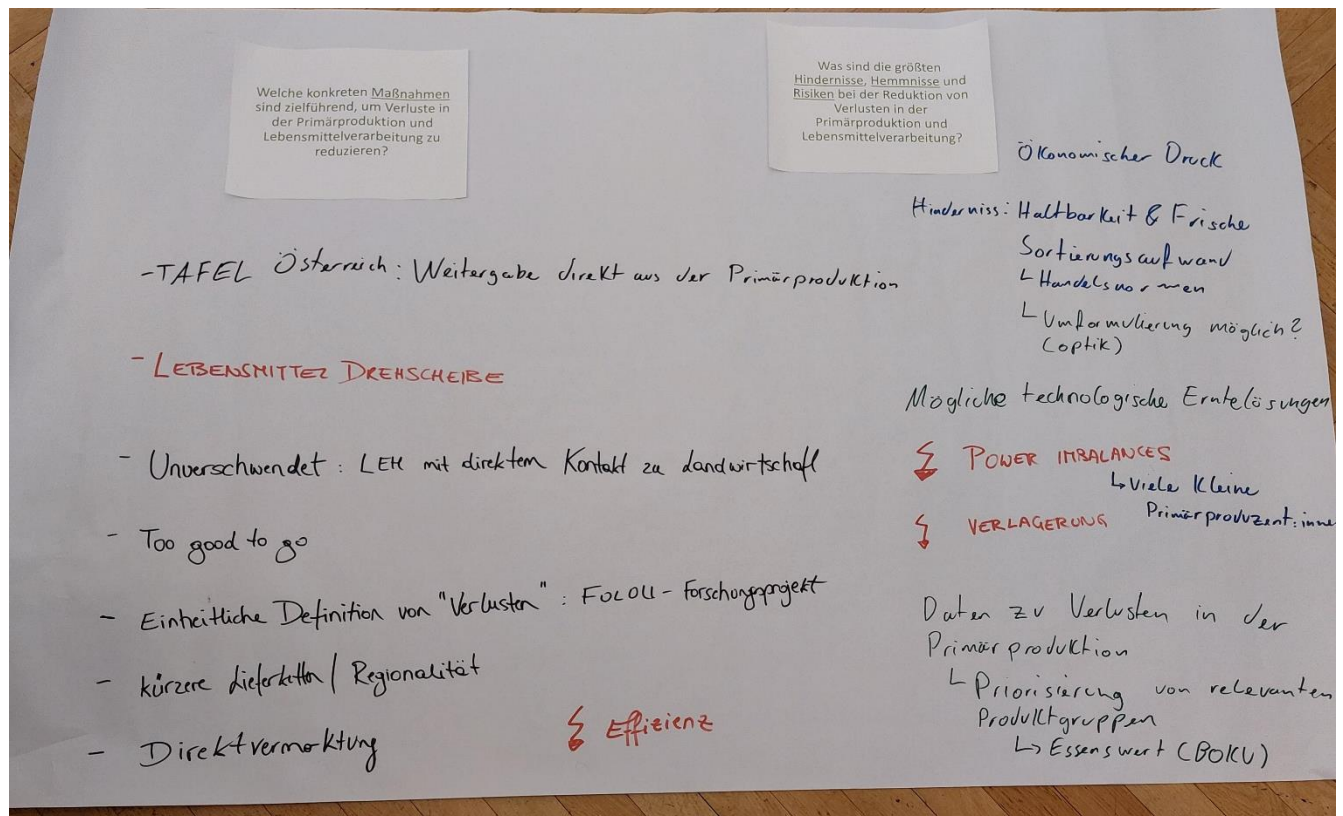 Welche konkreten Maßnahmen
sind zielführend, um Verluste in
der Primärproduktion und
Lebensmittelverarbeitung zu
reduzieren?
-TAFEL Österreich: Weitergabe direkt aus der Primärproduktion
- LEBENSMITTEL DREHSCHEIBE
- Unverschwendet: LEH mit direktem Kontakt zu Landwirtschaft
- Too good to go
- Einheitliche Definition von "Verlusten": FOLOU - Forschungsprojekt
- kürzere Lieferketten / Regionalität
- Direktvermarktung
Effizienz
Was sind die größten
Hindernisse, Hemmnisse und
Risiken bei der Reduktion von
Verlusten in der
Primärproduktion und
Lebensmittelverarbeitung?
Ökonomischer Druck
Hinderniss: Haltbarkeit & Frische
Sortierungsaufwand
Handelsnormen
Umformulierung möglich?
(optik)
Mögliche technologische Erntelösungen
POWER IMBALANCES
↳ Viele Kleine
Primärproduzent:inne
VERLAGERUNG
Daten zu Verlusten in der
Primärproduktion
Priorisierung von relevanten
Produktgruppen
↳ Essenswert (BOKU)